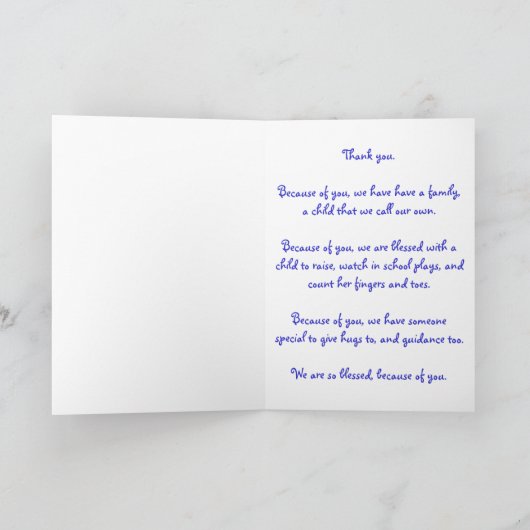 Thank you.
Because of you, we have have a family,
a child that we call our own.
Because of you, we are blessed with a
child to raise, watch in school plays, and
count her fingers and toes.
Because of you, we have someone
special to give hugs to, and guidance too.
We are so blessed, because of you.